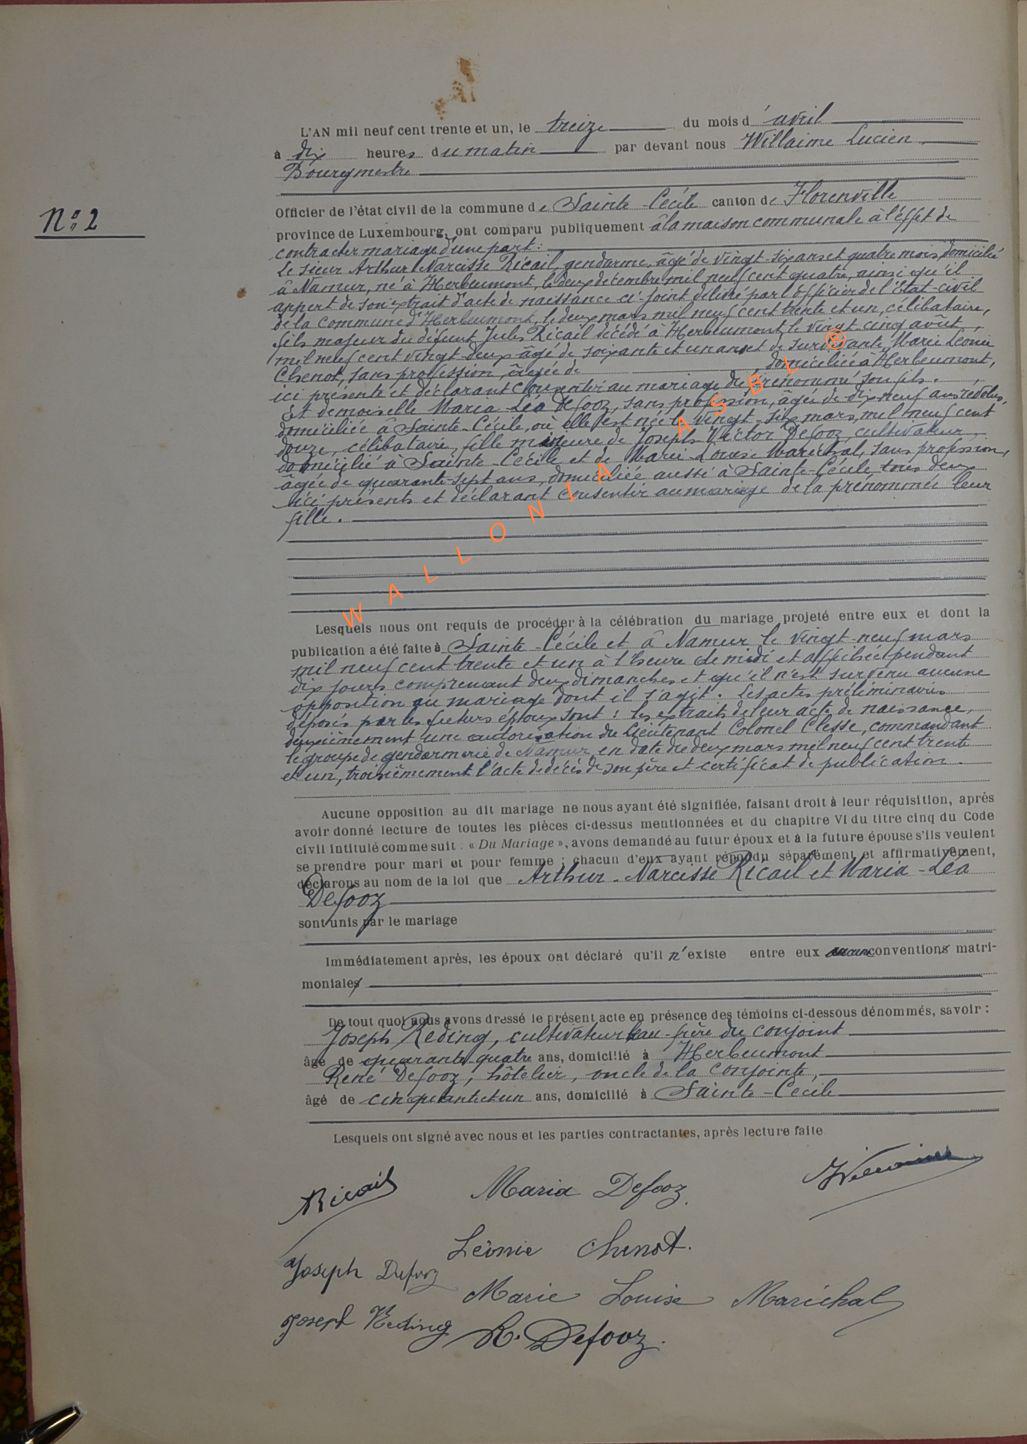 L'AN mil neuf cent trente et un, le treize du mois d'avril
à dix heures du matin par devant nous Willaime Lucien
Bourgmestre
Officier de l'état civil de la commune de Sainte-Cécile canton de Florenville
N° 2
province de Luxembourg, ont comparu publiquement à la maison communale à l'effet de
contracter mariage d'une part :
Le sieur Arthur Narcisse Ricail, gendarme, âgé de vingt-six ans et quatre mois, domicilié
à Namur, né à Herbeumont, le deux décembre mil neuf cent quatre, ainsi qu'il
appert de son extrait d'acte de naissance ci-joint délivré par l'officier de l'Etat civil
de la commune d'Herbeumont, le deux mars mil neuf cent trente et un, célibataire,
fils majeur du défunt Jules Ricail décédé à Herbeumont, le vingt cinq août,
mil neuf cent vingt deux âgé de soixante et un ans et de survivante Marie Léonie
Chenot, sans profession, âgée de domiciliée à Herbeumont,
ici présente et déclarant consentir au mariage du prénommé son fils.
Et demoiselle Maria Léa Defooz, sans profession, âgée de dix-neuf ans révolus,
domiciliée à Sainte-Cécile, où elle est née le vingt-six mars, mil neuf cent
douze, célibataire, fille mineure de Joseph Victor Defooz, cultivateur,
domicilié à Sainte Cécile et de Marie-Louise Maréchal, sans profession,
âgée de quarante-sept ans, domiciliée aussi à Sainte-Cécile, tous deux
ici présents et déclarant consentir au mariage de la prénommée leur
fille.
WALLONIA ASBL ©
Lesquels nous ont requis de procéder à la célébration du mariage projeté entre eux et dont la
publication a été faite à Sainte-Cécile et à Namur le vingt-neuf mars
mil neuf cent trente et un à l'heure de midi et affichée pendant
dix jours comprenant deux dimanches et qu'il n'est survenu aucune
opposition au mariage dont il s'agit. Les actes préliminaires
déposés par les futurs époux sont : les extraits de leur acte de naissance,
deuxièmement une autorisation du Lieutenant Colonel Clesse, commandant
le groupe de gendarmerie de Namur, en date du deux mars mil neuf cent trente
et un, troisièmement l'acte de décès de son père et certificat de publication.
Aucune opposition au dit mariage ne nous ayant été signifiée, faisant droit à leur réquisition, après
avoir donné lecture de toutes les pièces ci-dessus mentionnées et du chapitre VI du titre cinq du Code
civil intitulé comme suit : « Du Mariage », avons demandé au futur époux et à la future épouse s'ils veulent
se prendre pour mari et pour femme ; chacun d'eux ayant répondu séparément et affirmativement,
déclarons au nom de la loi que Arthur-Narcisse Ricail et Maria-Léa
Defooz
sont unis par le mariage
Immédiatement après, les époux ont déclaré qu'il n'existe entre eux aucune conventions matri-
moniales
De tout quoi nous avons dressé le présent acte en présence des témoins ci-dessous dénommés, savoir :
Joseph Reding, cultivateur beau-frère du conjoint
âgé de quarante-quatre ans, domicilié à Herbeumont
René Defooz, hôtelier, oncle de la conjointe,
âgé de cinquante et un ans, domicilié à Sainte-Cécile
Lesquels ont signé avec nous et les parties contractantes, après lecture faite
Ricail Maria Defooz Willaime
Léonie Chenot.
Joseph Defooz
Marie Louise Maréchal
Joseph Reding R. Defooz.